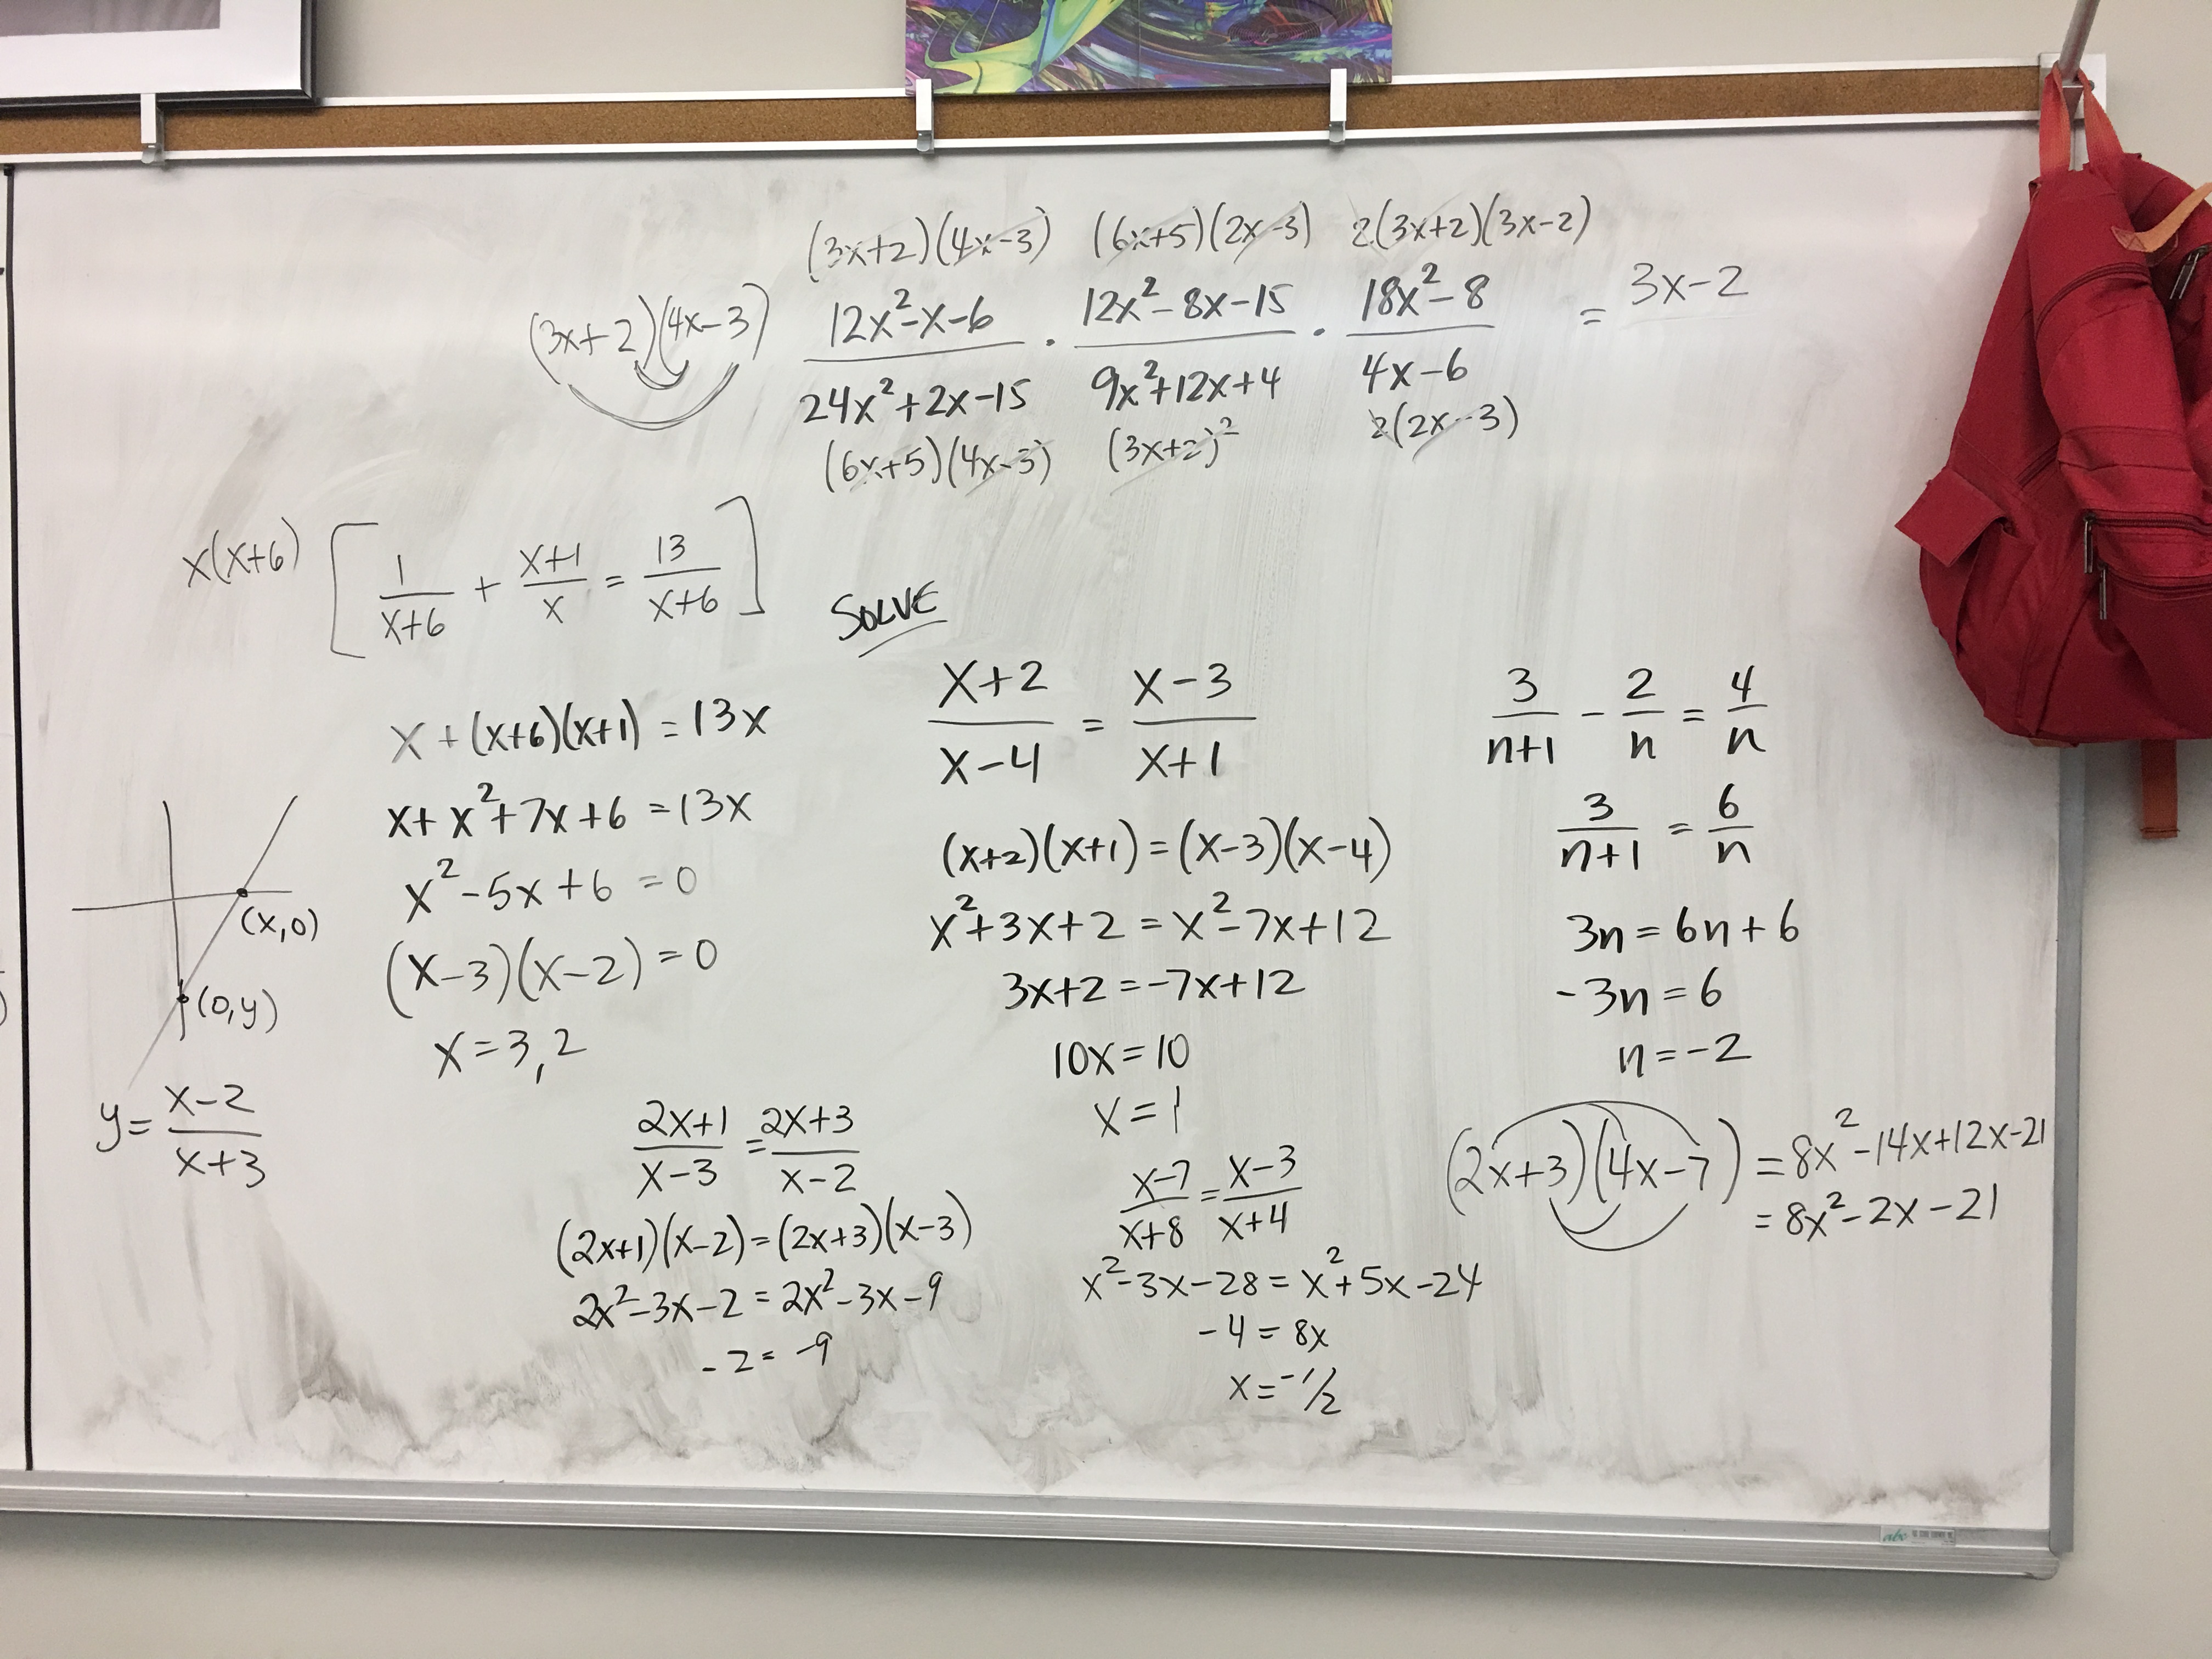 (3x+2)(4x-3) (6x+5)(2x-3) 2(3x+2)(3x-2)
(3x+2)(4x-3) 12x²-x-6 / 24x²+2x-15 · 12x²-8x-15 / 9x²+12x+4 · 18x²-8 / 4x-6 = 3x-2
(6x+5)(4x-3) (3x+2)² 2(2x-3)
x(x+6) [ 1/(x+6) + (x+1)/x = 13/(x+6) ]
x + (x+6)(x+1) = 13x
x + x² + 7x + 6 = 13x
x² - 5x + 6 = 0
(x-3)(x-2) = 0
x = 3, 2
(x,0)
(0,y)
y = (x-2)/(x+3)
SOLVE
(x+2)/(x-4) = (x-3)/(x+1)
(x+2)(x+1) = (x-3)(x-4)
x²+3x+2 = x²-7x+12
3x+2 = -7x+12
10x = 10
x = 1
3/(n+1) - 2/n = 4/n
3/(n+1) = 6/n
3n = 6n + 6
-3n = 6
n = -2
(2x+1)/(x-3) = (2x+3)/(x-2)
(2x+1)(x-2) = (2x+3)(x-3)
2x²-3x-2 = 2x²-3x-9
-2 = -9
(x-7)/(x+8) = (x-3)/(x+4)
x²-3x-28 = x²+5x-24
-4 = 8x
x = -1/2
(2x+3)(4x-7) = 8x²-14x+12x-21
= 8x²-2x-21
abc